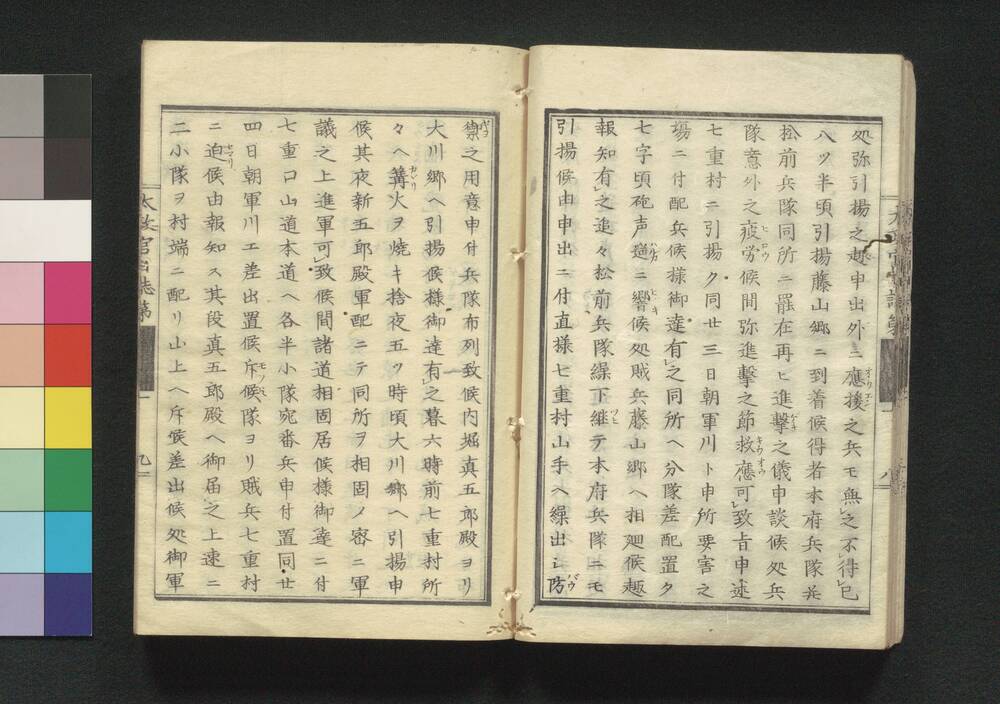 処弥引揚之趣申出外ニ應援之兵モ無之不得已
八ツ半頃引揚藤山郷ニ到着候得者本府兵隊並
松前兵隊同所ニ罷在再ヒ進擊之儀申談候処兵
隊意外之疲労候間弥進擊之節救應可致旨申述
七重村ニ引揚ク同廿三日朝軍川ト申所要害之
場ニ付配兵候様御達有之同所ヘ分隊差配置タ
七字頃砲声遥ニ響候処賊兵藤山郷ヘ相廻候趣
報知有之追々松前兵隊繰下継テ本府兵隊ニモ
引揚候由申出ニ付直様七重村山手ヘ繰出シ防
禦之用意申付兵隊布列致候内堀真五郎殿ヨリ
大川郷ヘ引揚候様御達有之暮六時前七重村所
々ヘ篝火ヲ焼キ捨夜五ツ時頃大川郷ヘ引揚申
候其夜新五郎殿軍配ニテ同所ヲ相固ノ密ニ軍
議之上進軍可致候間諸道相固居候様御達ニ付
七重口山道本道ヘ各半小隊宛番兵申付置同廿
四日朝軍川エ差出置候斥候隊ヨリ賊兵七重村
ニ迫候由報知ス其段真五郎殿ヘ御届之上速ニ
二小隊ヲ村端ニ配リ山上ヘ斥候差出候処御軍
太政官日誌第
九